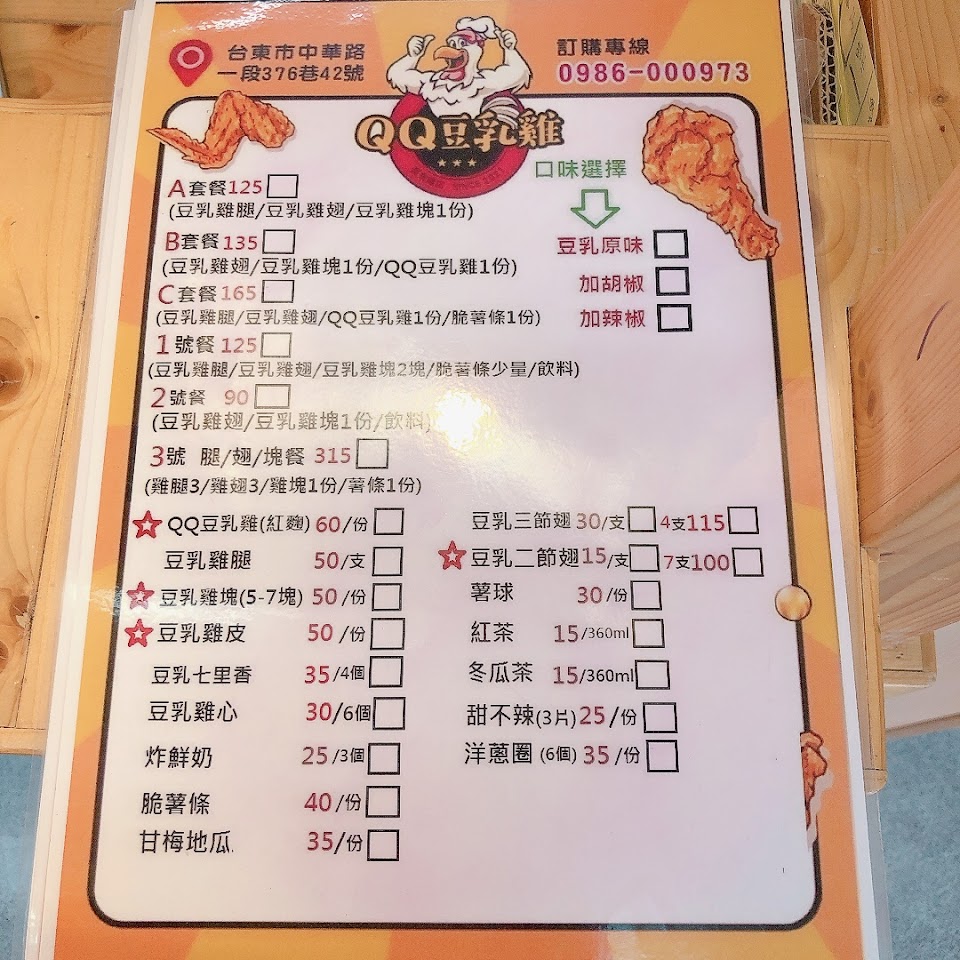 台東市中華路
一段376巷42號
訂購專線
0986-000973
QQ豆乳雞
口味選擇
豆乳原味
加胡椒
加辣椒
A套餐125
(豆乳雞腿/豆乳雞翅/豆乳雞塊1份)
B套餐135
(豆乳雞翅/豆乳雞塊1份/QQ豆乳雞1份)
C套餐165
(豆乳雞腿/豆乳雞翅/QQ豆乳雞1份/脆薯條1份)
1號餐125
(豆乳雞腿/豆乳雞翅/豆乳雞塊2塊/脆薯條少量/飲料)
2號餐 90
(豆乳雞翅/豆乳雞塊1份/飲料)
3號 腿/翅/塊餐 315
(雞腿3/雞翅3/雞塊1份/薯條1份)
QQ豆乳雞(紅麴) 60/份
豆乳雞腿 50/支
豆乳雞塊(5-7塊) 50/份
豆乳雞皮 50/份
豆乳七里香 35/4個
豆乳雞心 30/6個
炸鮮奶 25/3個
脆薯條 40/份
甘梅地瓜 35/份
豆乳三節翅30/支 4支115
豆乳二節翅15/支 7支100
薯球 30/份
紅茶 15/360ml
冬瓜茶 15/360ml
甜不辣(3片)25/份
洋蔥圈(6個)35/份